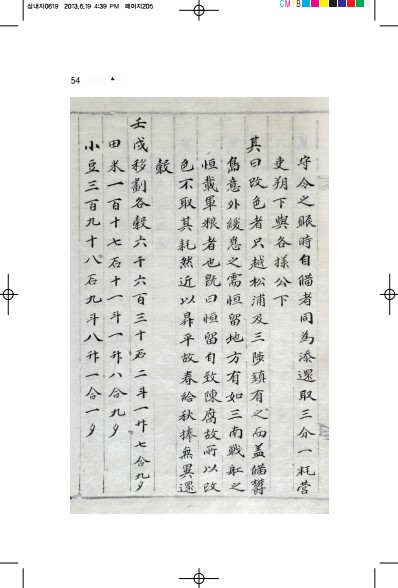 삼내지0619 2013.6.19 4:39 PM 페이지205
CM B
54
守令之賑時自備者同為添還取三分一耗營
吏朔下與各樣公下
其曰改色者只越松浦及三陟鎮有之而盖備鬱
島意外緩急之需恒留地方有如三南戰舡之
恒載軍粮者也既曰恒留自致陳腐故所以改
色不取其耗然近以昇平故春給秋捧無異還
穀
壬戌移劃各穀六千六百三十石二斗一升七合九夕
田米一百十七石十一斗一升八合九夕
小豆三百九十八石九斗八升一合一夕